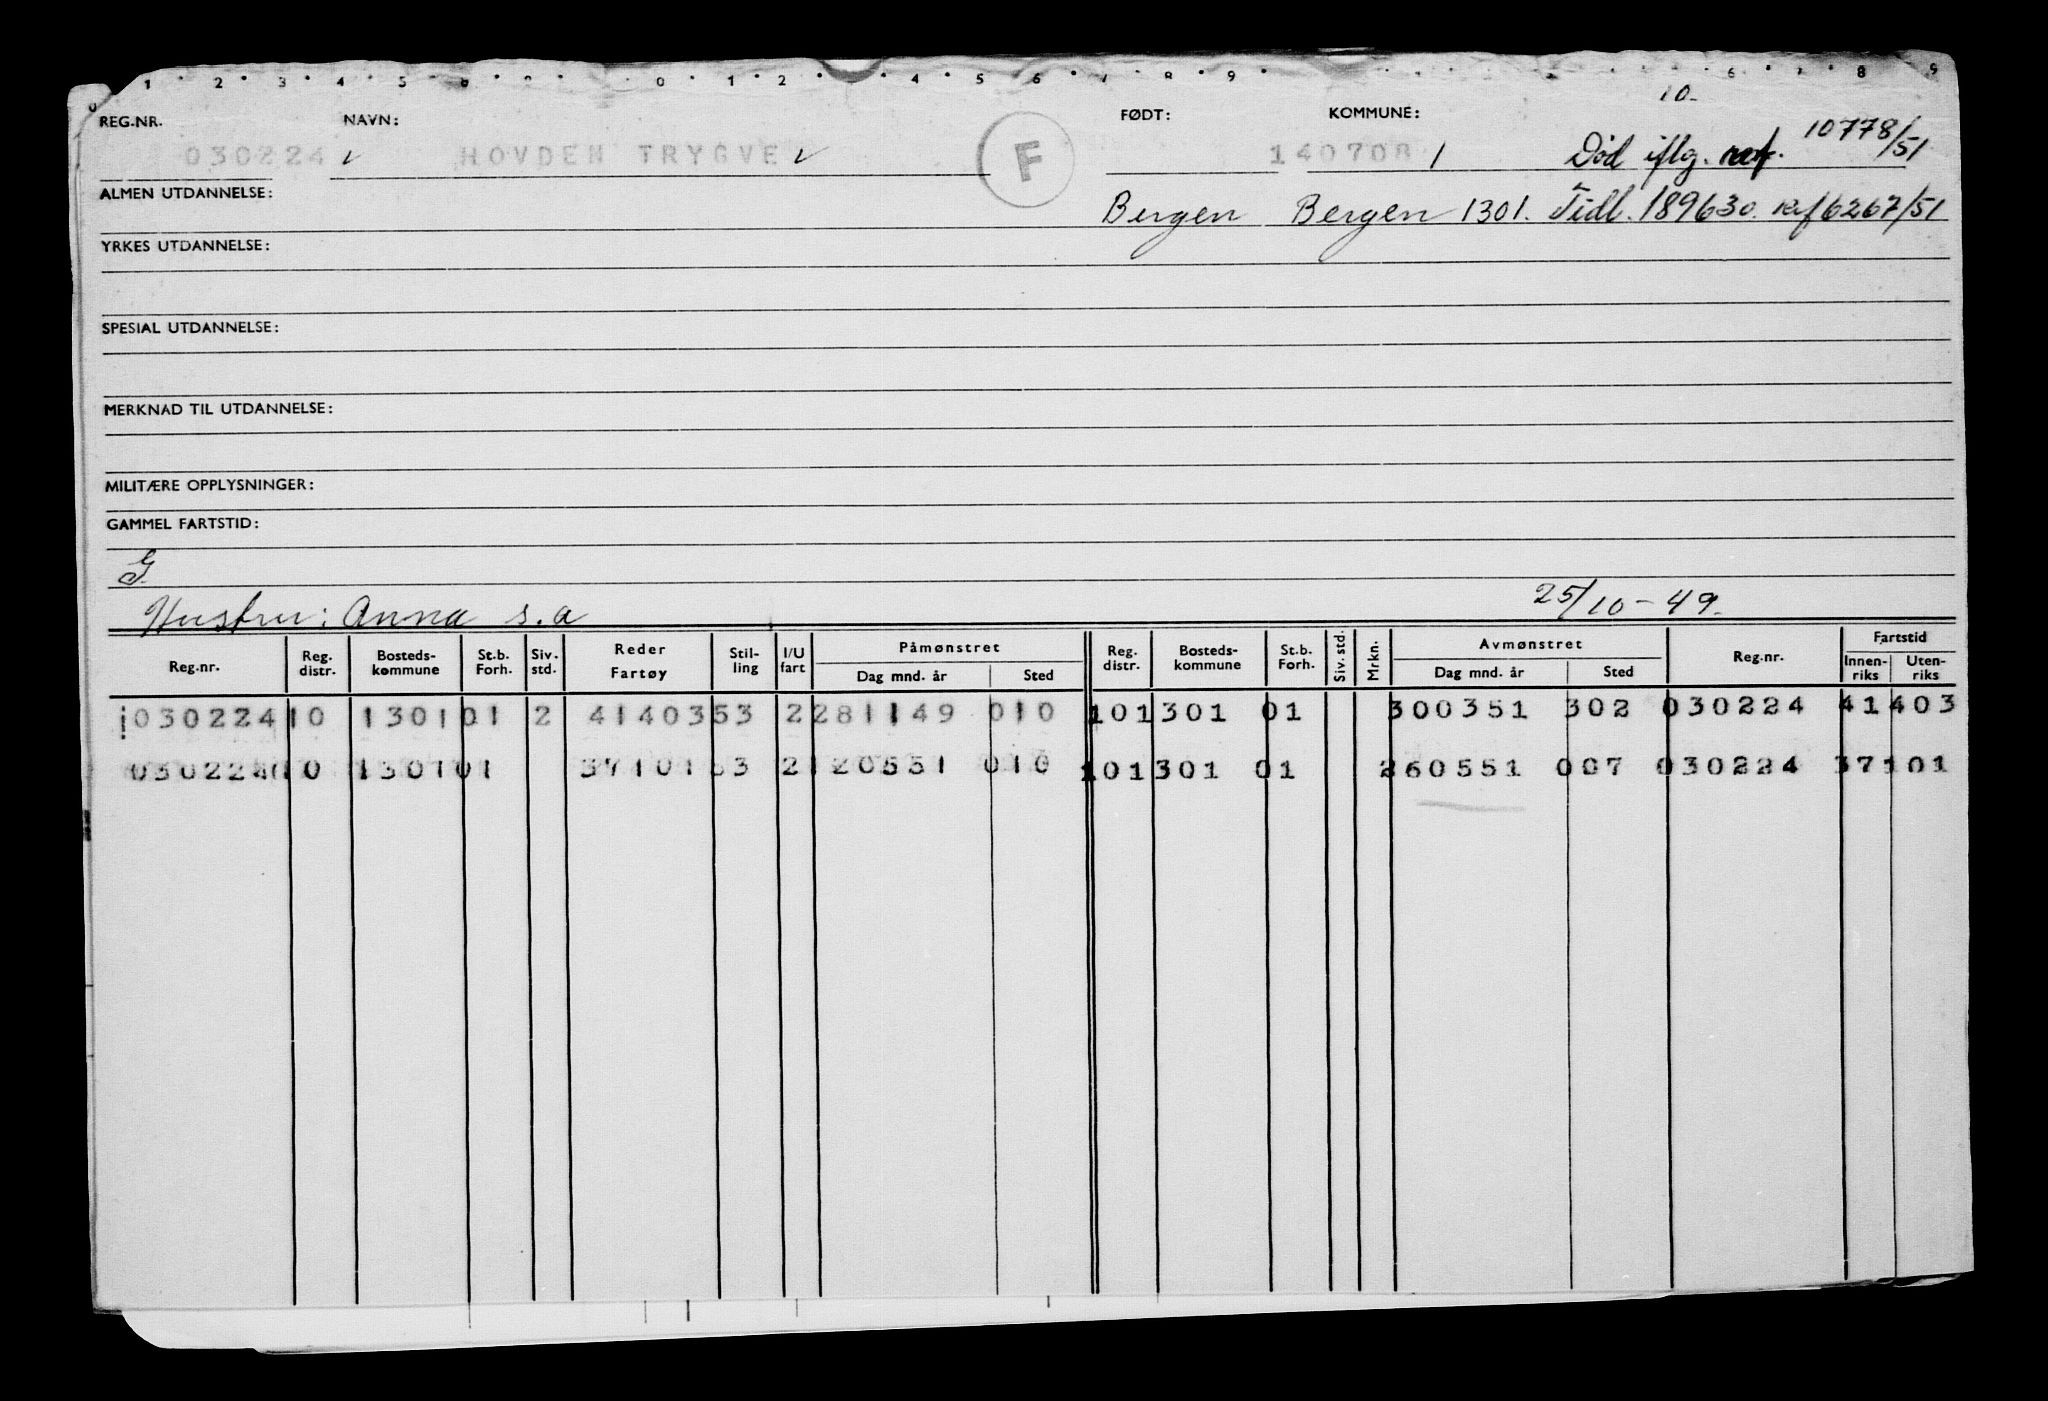 1 2 3 4 5 6 0 1 2 4 5 6 7 8 9 6 7 8 9
10.
REG.NR. NAVN: FØDT: KOMMUNE:
030224 HOVDEN TRYGVE F 140708 1 Død iflg. ref. 10778/51
ALMEN UTDANNELSE: Bergen Bergen 1301. Tidl. 189630. ref 6267/51
YRKES UTDANNELSE:
SPESIAL UTDANNELSE:
MERKNAD TIL UTDANNELSE:
MILITÆRE OPPLYSNINGER:
GAMMEL FARTSTID:
G
Hustru: Anna s.a 25/10-49.
Reg.nr. Reg. distr. Bosteds-kommune St.b. Forh. Siv. std. Reder Fartøy Stil-ling I/U fart Påmønstret Dag mnd. år Sted Reg. distr. Bosteds-kommune St.b. Forh. Siv. std. Mrkn. Avmønstret Dag mnd. år Sted Reg.nr. Fartstid Innen-riks Uten-riks
030224 10 1301 01 2 41403 53 2 281149 010 10 1301 01 300351 302 030224 41403
030224 10 1301 01 37101 53 2 120551 010 10 1301 01 260551 007 030224 37101